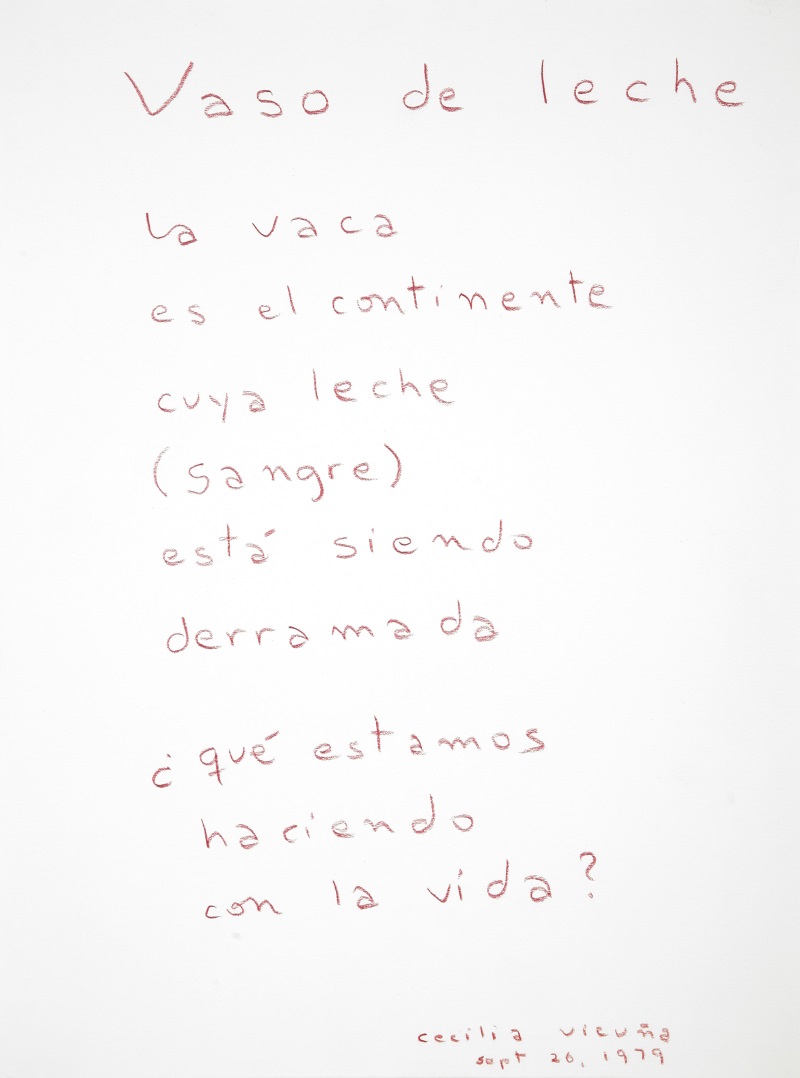 Vaso de leche
la vaca
es el continente
cuya leche
(sangre)
está siendo
derramada
¿qué estamos
haciendo
con la vida?
cecilia vicuña
sept 26, 1979